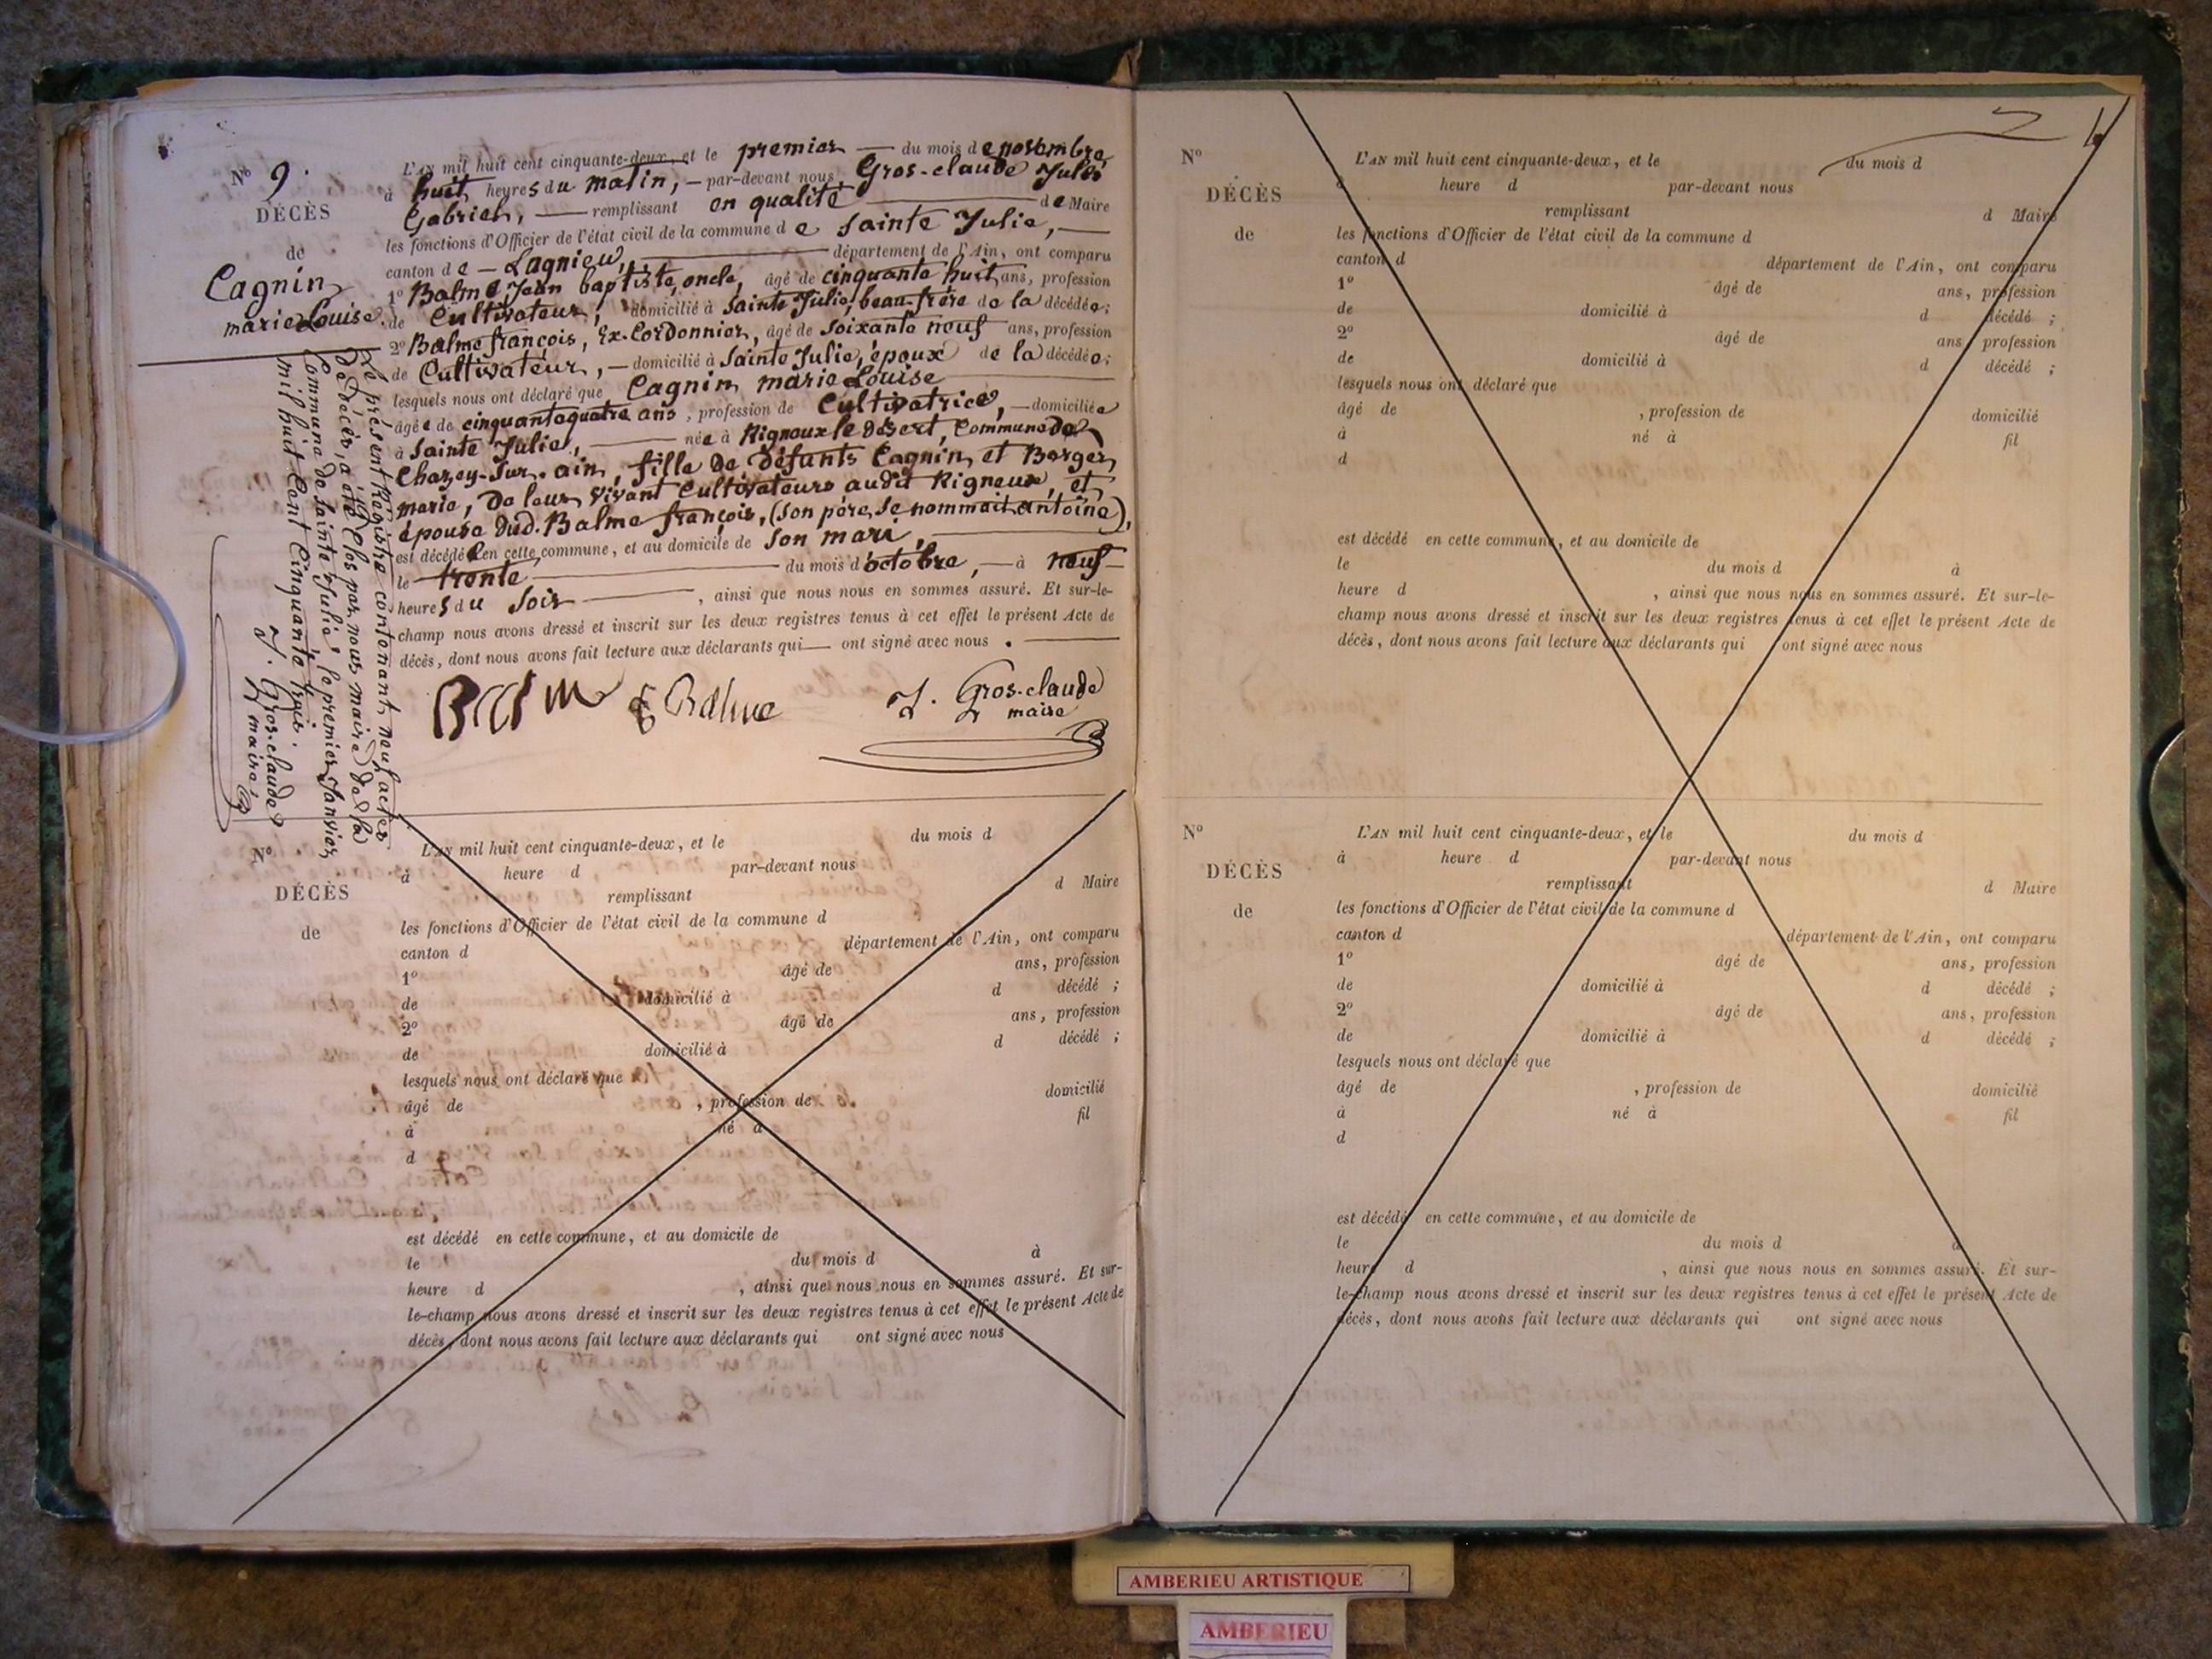 N° 9.
DÉCÈS
de
Cagnin
marie Louise.
L'AN mil huit cent cinquante-deux, et le premier — du mois de novembre
à huit heures du matin, — par-devant nous Gros-claude Jules
Gabriel, — remplissant en qualité — de Maire
les fonctions d'Officier de l'état civil de la commune de Sainte Julie, —
canton de — Lagnieu, — département de l'Ain, ont comparu
1° Balme Jean baptiste, oncle, âgé de cinquante huit ans, profession
de Cultivateur, domicilié à Sainte Julie, beau-frère de la décédée;
2° Balme françois, Ex-Cordonnier, âgé de soixante neuf ans, profession
de Cultivateur, — domicilié à Sainte Julie, époux de la décédée;
lesquels nous ont déclaré que Cagnin, marie Louise —
âgée de cinquantequatre ans, profession de Cultivatrice, — domiciliée
à Sainte Julie, — née à Rignoux le désert, Commune de
Chazey-Sur-ain, fille de défunts Cagnin, et Berger
marie, De leur vivant Cultivateurs audit Rigneux, et
épouse dud. Balme françois, (son père se nommait antoine),
est décédée en cette commune, et au domicile de son mari, —
le trente — du mois d'octobre, — à neuf —
heures du soir —, ainsi que nous nous en sommes assuré. Et sur-le-
champ nous avons dressé et inscrit sur les deux registres tenus à cet effet le présent Acte de
décès, dont nous avons fait lecture aux déclarants qui — ont signé avec nous . —
Balme
J. Gros-claude
maire
Le présent Registre contenant neuf actes
De décès, a été Clos par nous maire de la
Commune de Sainte Julie, le premier Janvier
mil huit Cent Cinquante trois.
J. Gros-claude
maire
N°
DÉCÈS
de
L'AN mil huit cent cinquante-deux, et le du mois d
à heure d par-devant nous
remplissant d Maire
les fonctions d'Officier de l'état civil de la commune d
canton d département de l'Ain, ont comparu
1° âgé de ans, profession
de domicilié à d décédé ;
2° âgé de ans, profession
de domicilié à d décédé ;
lesquels nous ont déclaré que
âgé de , profession de domicilié
à né à fil
d
est décédé en cette commune, et au domicile de
le du mois d à
heure d , ainsi que nous nous en sommes assuré. Et sur-
le-champ nous avons dressé et inscrit sur les deux registres tenus à cet effet le présent Acte de
décès, dont nous avons fait lecture aux déclarants qui ont signé avec nous
N°
DÉCÈS
de
L'AN mil huit cent cinquante-deux, et le du mois d
à heure d par-devant nous
remplissant d Maire
les fonctions d'Officier de l'état civil de la commune d
canton d département de l'Ain, ont comparu
1° âgé de ans, profession
de domicilié à d décédé ;
2° âgé de ans, profession
de domicilié à d décédé ;
lesquels nous ont déclaré que
âgé de , profession de domicilié
à né à fil
d
est décédé en cette commune, et au domicile de
le du mois d à
heure d , ainsi que nous nous en sommes assuré. Et sur-le-
champ nous avons dressé et inscrit sur les deux registres tenus à cet effet le présent Acte de
décès, dont nous avons fait lecture aux déclarants qui ont signé avec nous
N°
DÉCÈS
de
L'AN mil huit cent cinquante-deux, et le du mois d
à heure d par-devant nous
remplissant d Maire
les fonctions d'Officier de l'état civil de la commune d
canton d département de l'Ain, ont comparu
1° âgé de ans, profession
de domicilié à d décédé ;
2° âgé de ans, profession
de domicilié à d décédé ;
lesquels nous ont déclaré que
âgé de , profession de domicilié
à né à fil
d
est décédé en cette commune, et au domicile de
le du mois d à
heure d , ainsi que nous nous en sommes assuré. Et sur-
le-champ nous avons dressé et inscrit sur les deux registres tenus à cet effet le présent Acte de
décès, dont nous avons fait lecture aux déclarants qui ont signé avec nous
AMBERIEU ARTISTIQUE
AMBERIEU